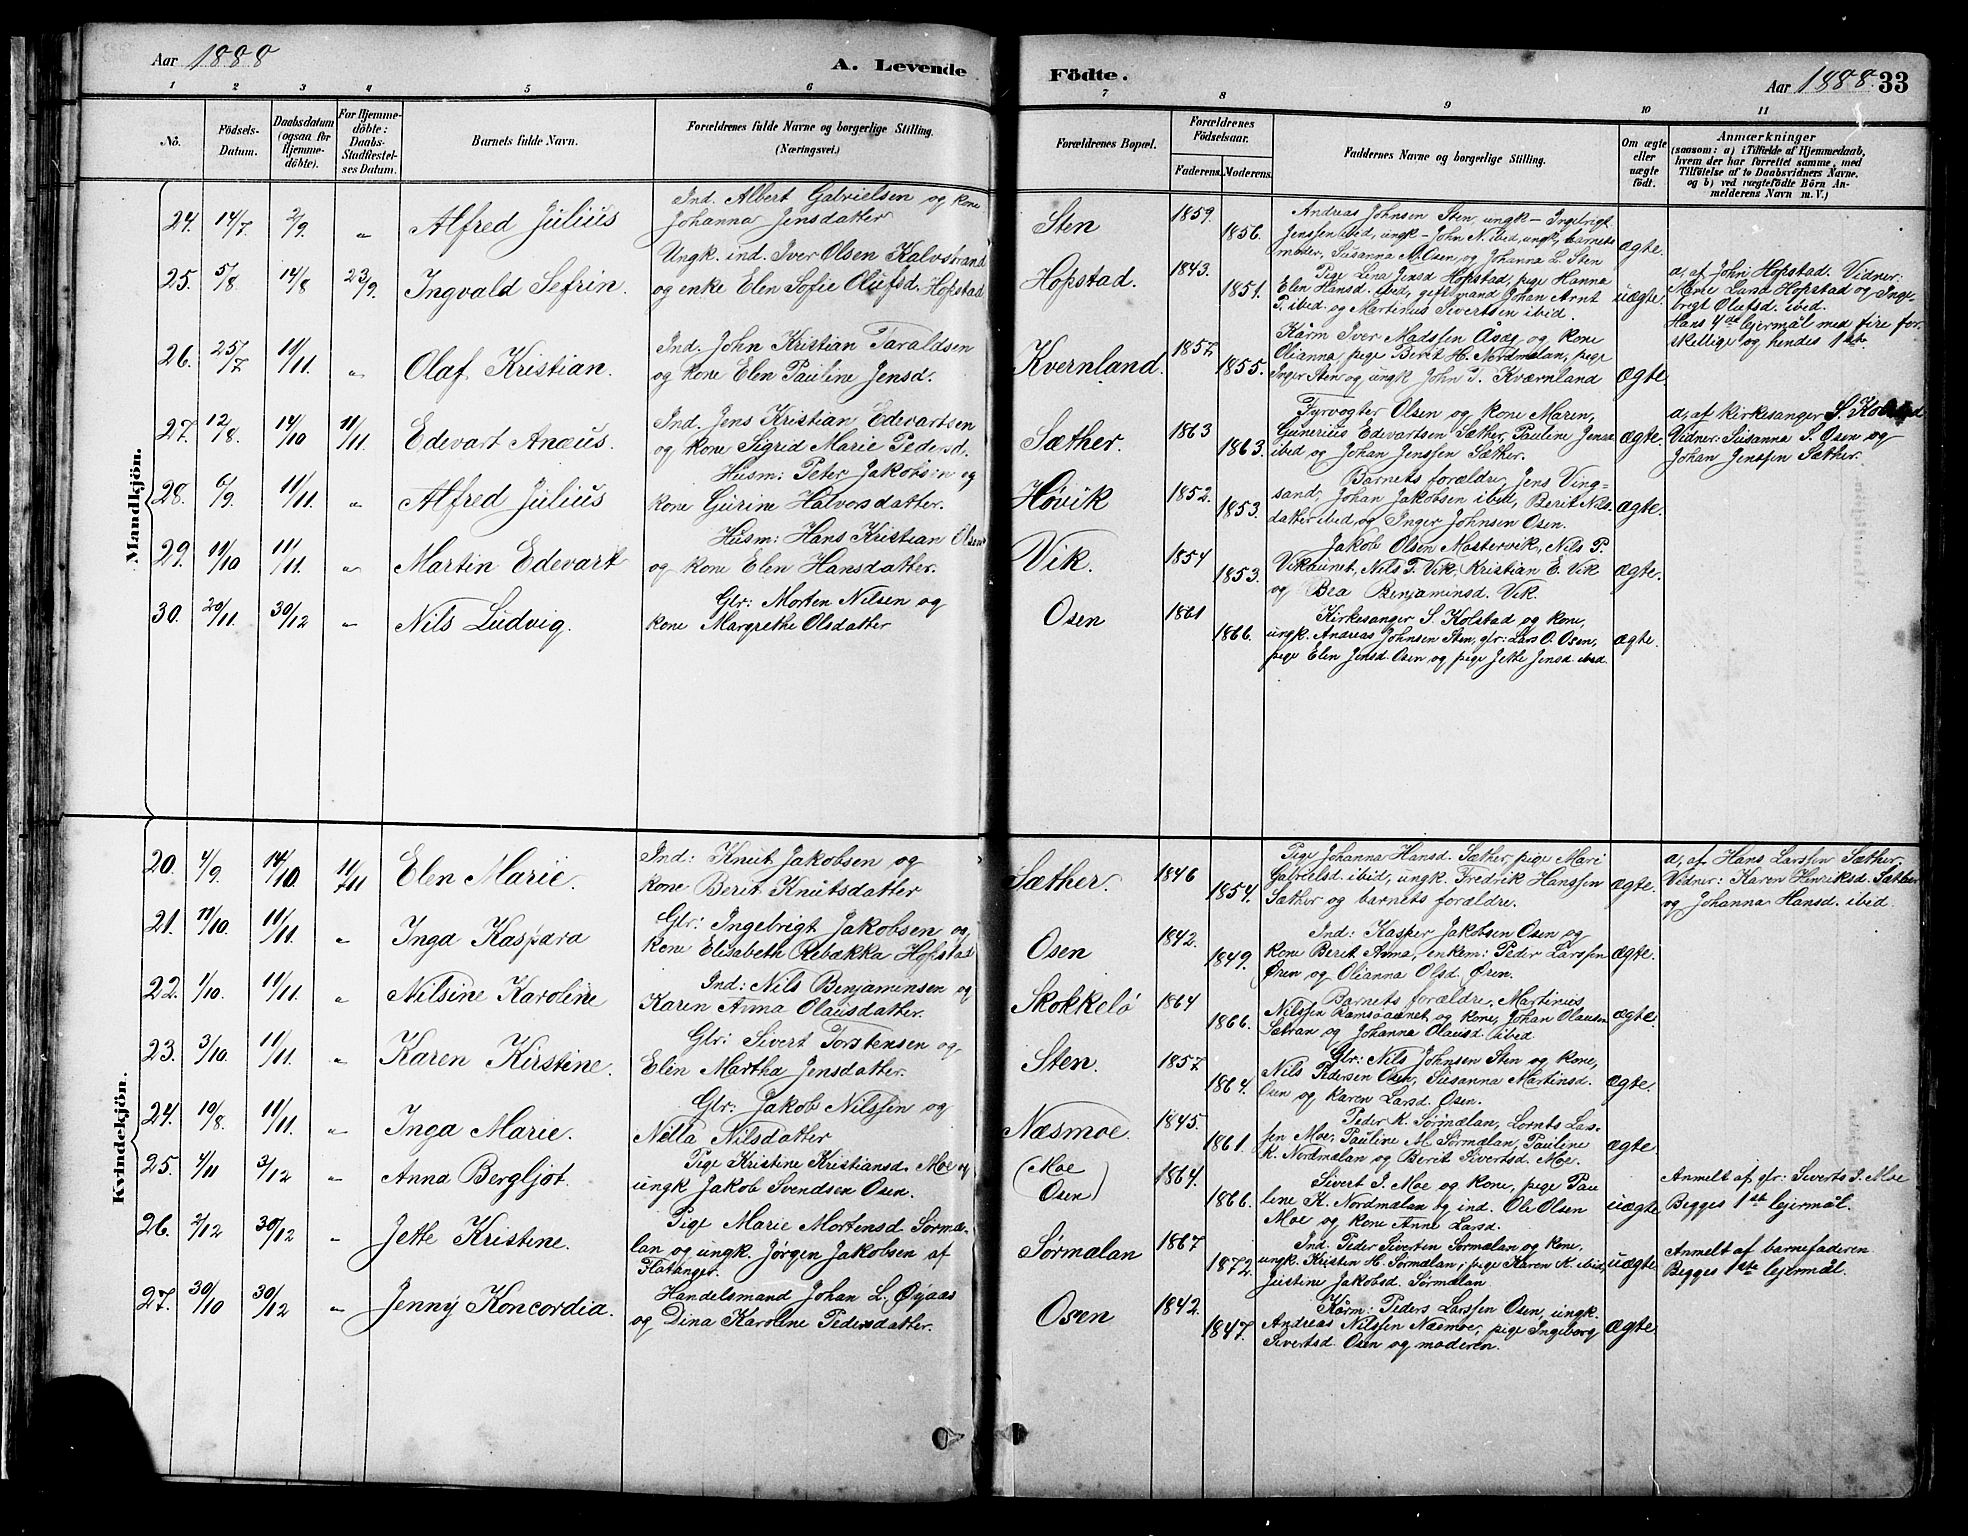 Aar 1888
A. Levende
1 2 3 4 5 6
No.
Födsels-Datum.
Daabsdatum (ogsaa for Hjemmedöbte).
For Hjemmedöbte: Daabs-Stadfæstelses Datum.
Barnets fulde Navn.
Forældrenes fulde Navne og borgerlige Stilling.
(Næringsvei.)
Födte.
Aar 1888. 33
7 8 9 10 11
Forældrenes Bopæl.
Forældrenes Födselsaar.
Faderens. Moderens.
Faddernes Navne og borgerlige Stilling.
Om ægte eller uægte födt.
Anmærkninger
(saasom: a) i Tilfælde af Hjemmedaab, hvem der har forrettet samme, med Tilföielse af to Daabsvidners Navne. og b) ved uægtefödte Börn Anmelderens Navn m. V.)
Mandkjön.
24. 14/7. 2/9. „ Alfred Julius
Ind. Albert Gabrielsen og kone
Johanna Jensdatter
Sten 1859. 1856.
Andreas Johnsen Sten, ungk- Ingebrigt
Jenssen ibid, ungk- John N. ibid, ungk, barnets
moder, Susanna M. Osen, og Johanna L. Sten
ægte
25. 5/8. 14/8 23/9. Ingvald Sefrin.
Ungk. ind. Iver Olsen Kalvstrand
og enke Elen Sofie Olufsd. Hopstad
Hopstad. 1843. 1851.
Pige Lina Jensd Hopstad, pige Hanna
Elen Hansd. ibid, giftsmand Johan Arnt
P. ibid og Martinus Sivertsen ibid.
uægte.
a, af John Hopstad. Vidner:
Marie Larsd Hopstad og Inge-
brigt Olufsd. ibid.
Hans 4de lejermål med fire for-
skellige og hendes 1ste
26. 25/7 11/11. „ Olaf Kristian.
Ind. John Kristian Taraldsen
og kone Elen Pauline Jensd.
Kvernland. 1857. 1855.
Kårm Iver Madssen Åsæg og kone
Olianna, pige Berit H. Nordmælan, pige
Inger Sten og ungk John T. Kværnland
ægte
27. 12/8. 14/10 11/11. Edevart Anæus.
Ind. Jens Kristian Edevartsen
og kone Sigrid Marie Pedersd.
Sæther. 1863 1863.
Fyrvogter Olsen og kone Maren,
Gunerius Edevartsen Sæther, Pauline Jensd
ibid og Johan Jenssen Sæther.
ægte.
a, af Kirkesanger S. Kolstad
Vidner: Susanna S. Osen og
Johan Jenssen Sæther.
28. 6/9. 11/11. „ Alfred Julius
Husm: Peter Jakobsen og
kone Gurine Halvorsdatter.
Høvik 1852. 1853.
Barnets forældre, Jens Ving-
sand, Johan Jakobsen ibid, Berit Nils-
datter ibid, og Inger Johnsen Osen.
ægte.
29. 11/10 11/11. „ Martin Edevart
Husm: Hans Kristian Olsen
og kone Elen Hansdatter.
Vik. 1854 1853.
Jakob Olsen Mostervik, Nils P.
Viktunet, Nils T. Vik, Kristian E. Vik
og Bea Benjaminsd. Vik.
ægte.
30. 20/11. 30/12 „ Nils Ludvig.
Glr: Morten Nilsen og
kone Margrethe Olsdatter
Osen 1861 1866.
Kirkesanger S. Kolstad og kone,
ungk. Andreas Johnsen Sten, glr: Lars O. Osen,
pige Elen Jensd. Osen, og pige Jette Jensd ibid.
ægte.
Kvindekjön.
20. 4/9. 14/10. 11/11 Elen Marie.
Ind: Knut Jakobsen og
kone Berit Knutsdatter
Sæther. 1846 1854.
Pige Johanna Hansd. Sæther, pige Mari
Gabrielsd ibid, ungk. Fredrik Hanssen
Sæther og barnets forældre.
ægte.
a, af Hans Larssen Sæther.
Vidner: Karen Henriksd. Sæther
og Johanna Hansd. ibid.
21. 11/10. 11/11. „ Inga Kaspara
Glr: Ingebrigt Jakobsen og
kone Elisabeth Rebækka Hopstad
Osen 1842. 1849.
Ind: Kasper Jakobsen Osen og
kone Berit Anna, enkem: Peder Larssen
Øren og Olianna Olsd. Øren.
ægte.
22. 1/10. 11/11. „ Nilsine Karoline
Ind: Nils Benjaminsen og
Karen Anna Olausdatter.
Skokkelö 1864 1866.
Barnets forældre, Martinus
Nilssen Ramsøaunet og kone, Johan Olausen
Sætran og Johanna Olausd. ibid
ægte.
23. 3/10. 11/11. „ Karen Kirstine.
Glr: Sivert Torstensen og
Elen Martha Jensdatter.
Sten. 1857 1864.
Glr: Nils Johnsen Sten og kone,
Nils Pedersen Osen, Susanna Martinsd.
Osen og Karen Larsd. Osen.
ægte.
24. 19/8. 11/11. „ Inga Marie.
Glr: Jakob Nilssen og
Nilla Nilsdatter
Næsmoe. 1845. 1861.
Peder K. Sørmælan, Lornts Las-
sen Moe, Pauline M. Sørmælan, Pauline
K. Nordmælan og Berit Sivertsd. Moe.
ægte
25. 4/11 3/12 „ Anna Bergljot.
Pige Kristine Kristiansd. Moe og
ungk Jakob Svendsen Osen.
(Moe
Osen) 1864. 1866.
Sivert J. Moe og kone, pige Pau
line K. Nordmælan og ind. Ole Olsen
Moe og kone Anne Larsd.
uægte
Anmelt af glr: Siverts J. Moe
Begges 1st lejermål.
26. 2/12 30/12 „ Jette Kristine.
Pige Marie Mortensd Sørmæ-
lan og ungk. Jørgen Jakobsen af
Flatanger.
Sørmælan 1867 1872.
Ind. Peder Siverten Sørmælan og kone,
ungk. Kristen H. Sørmælan, pige Karen K. ibid,
Justine Jakobsd. Sørmælan.
uægte
Anmelt af barnefaderen
Begges 1ste lejermål.
27. 30/10 30/12 „ Jenny Koncordia.
Handelsmand Johan L. Øyaas
og Dina Karoline Pedersdatter.
Osen 1842. 1847.
Kårm: Peders Larssen Osen, ungk.
Andreas Nilssen Næsmoe, pige Ingeborg
Sivertsd. Osen og moderen.
ægte.